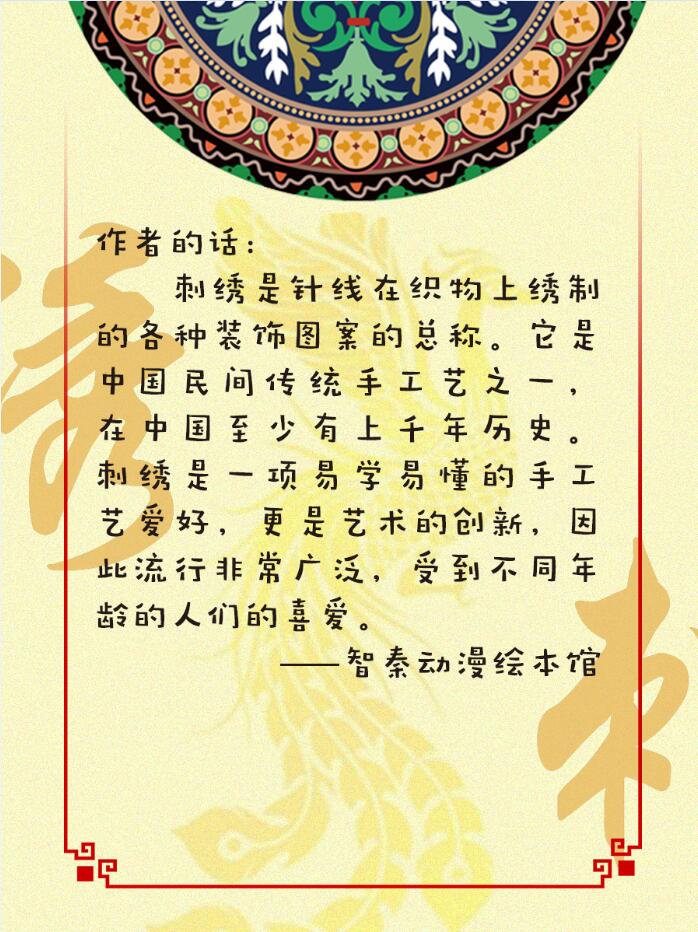 作者的话：
刺绣是针线在织物上绣制
的各种装饰图案的总称。它是
中国民间传统手工艺之一，
在中国至少有上千年历史。
刺绣是一项易学易懂的手工
艺爱好，更是艺术的创新，因
此流行非常广泛，受到不同年
龄的人们的喜爱。
——智秦动漫绘本馆
绣